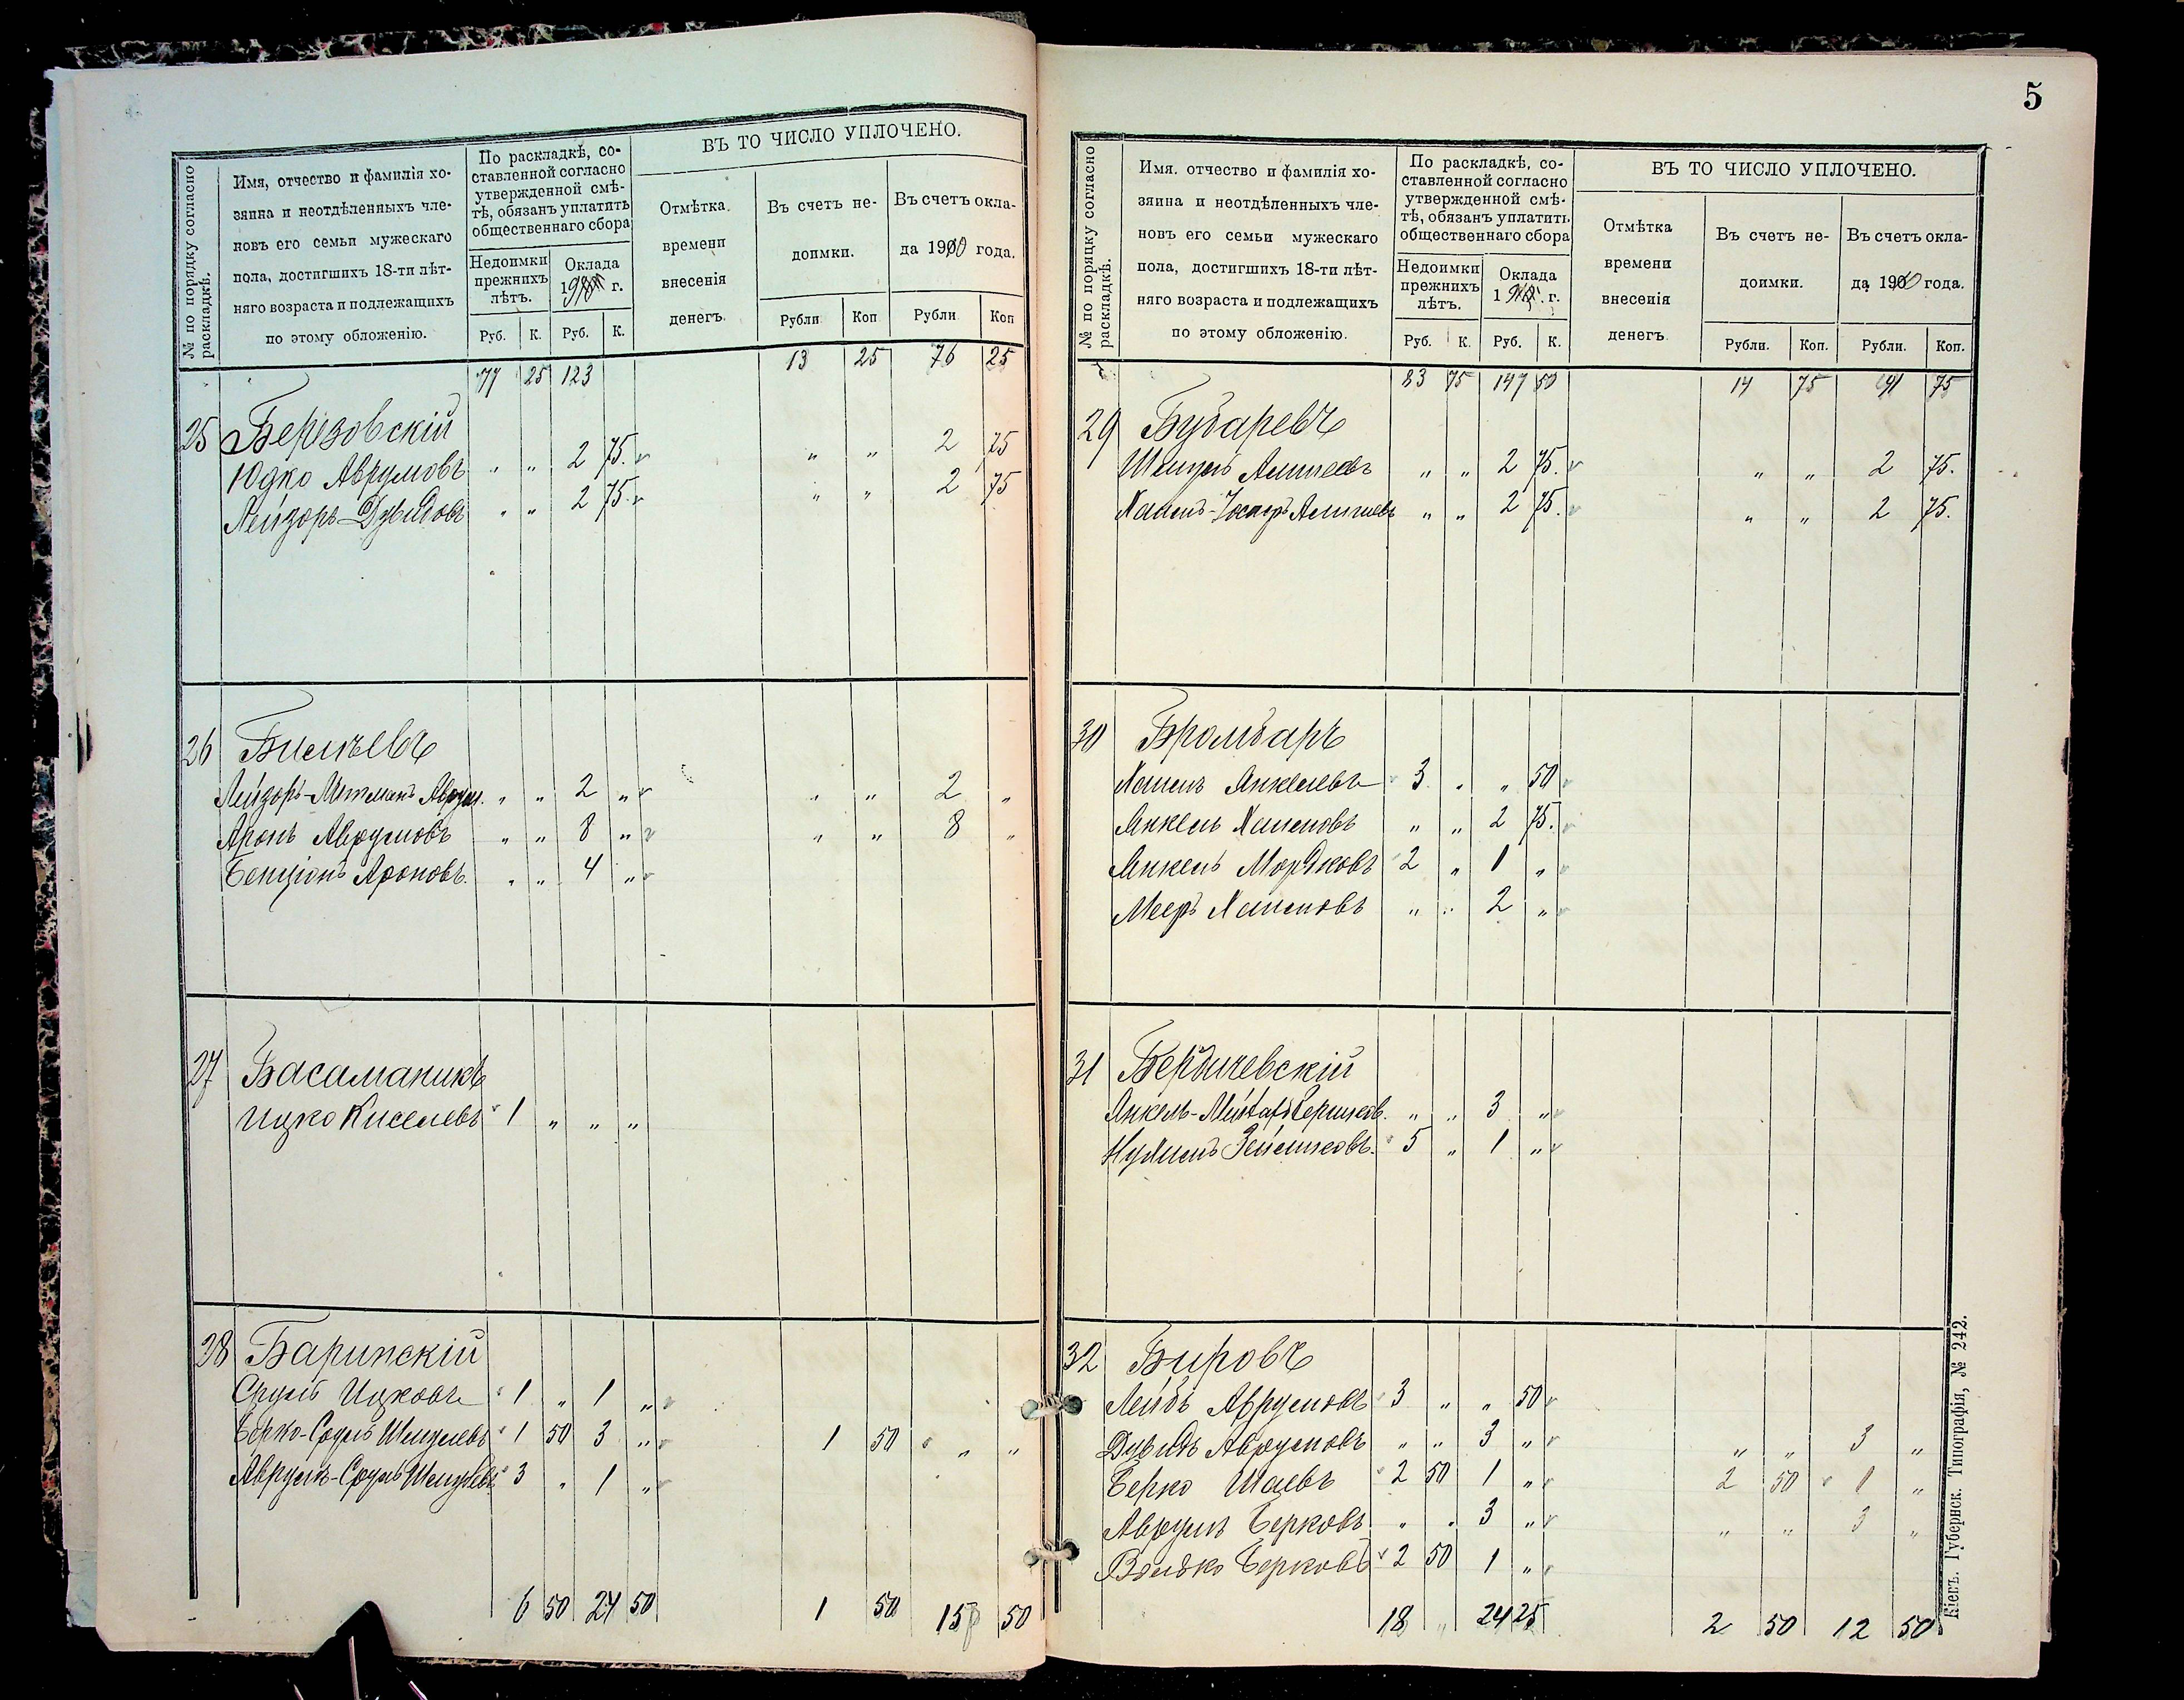 № по порядку согласно раскладкѣ.
Имя, отчество и фамилія хо-
зяина и неотдѣленныхъ чле-
новъ его семьи мужескаго
пола, достигшихъ 18-ти лѣт-
няго возраста и подлежащихъ
по этому обложенію.
По раскладкѣ, со-
ставленной согласно
утвержденной смѣ-
тѣ, обязанъ уплатить
общественнаго сбора
Недоимки
прежнихъ
лѣтъ.
Оклада
г.
Руб. К. Руб. К.
ВЪ ТО ЧИСЛО УПЛОЧЕНО.
Отмѣтка
времени
внесенія
денегъ.
Въ счетъ не-
доимки.
Въ счетъ окла-
да 1900 года.
Рубли Коп Рубли Коп
77 25 123 13 25 76 25
25 Березовскій
Юдко Аврумовъ „ „ 2 75. „ „ 2 75
Лейзоръ-Дувидовъ „ „ 2 75. „ „ 2 75
26
Лейзоръ- Аврум. „ „ 2 „ „ „ 2 „
Аронъ Аврумовъ „ „ 8 „ „ „ 8 „
Бенціонъ Ароновъ. „ „ 4 „
27 Басаманикъ
Ицко Киселевъ 1 „ „ „
28 Баринскій
Сруль Ицковъ 1 „ 1 „
Берко-Сруль Шмулевъ 1 50 3 „ 1 50 „ „
Аврумъ-Сруль Шмулевъ 3 „ 1 „
6 50 24 50 1 50 15 50
5
№ по порядку согласно раскладкѣ.
Имя. отчество и фамилія хо-
зяина и неотдѣленныхъ чле-
новъ его семьи мужескаго
пола, достигшихъ 18-ти лѣт-
няго возраста и подлежащихъ
по этому обложенію.
По раскладкѣ, со-
ставленной согласно
утвержденной смѣ-
тѣ, обязанъ уплатить
общественнаго сбора
Недоимки
прежнихъ
лѣтъ.
Оклада
г.
Руб. К. Руб. К.
ВЪ ТО ЧИСЛО УПЛОЧЕНО.
Отмѣтка
времени
внесенія
денегъ.
Въ счетъ не-
доимки.
Въ счетъ окла-
да 1900 года.
Рубли. Коп. Рубли. Коп.
83 75 147 50 14 75 91 75
29 Бударевъ
Шмуль „ „ 2 75. „ „ 2 75.
„ „ 2 75. „ „ 2 75.
30 Бромбаръ
Хаимъ Анкелевъ 3 „ „ 50
Анкель Хаимовъ „ „ 2 75.
Анкель Мордковъ 2 „ 1 „
Мееръ Хаимовъ „ „ 2 „
31 Бердичевскій
Анкель- „ „ 3 „
Нухимъ 5 „ 1 „
32 Бировъ
Лейбъ Аврумовъ 3 „ „ 50
Дувидъ Аврумовъ „ „ 3 „ „ „ 3 „
Берко Шаевъ 2 50 1 „ 2 50 1 „
Аврумъ Берковъ „ „ 3 „ „ „ 3 „
Волько Берковъ 2 50 1 „
18 „ 24 25 2 50 12 50
Кіевъ. Губернск. Типографія, № 242.